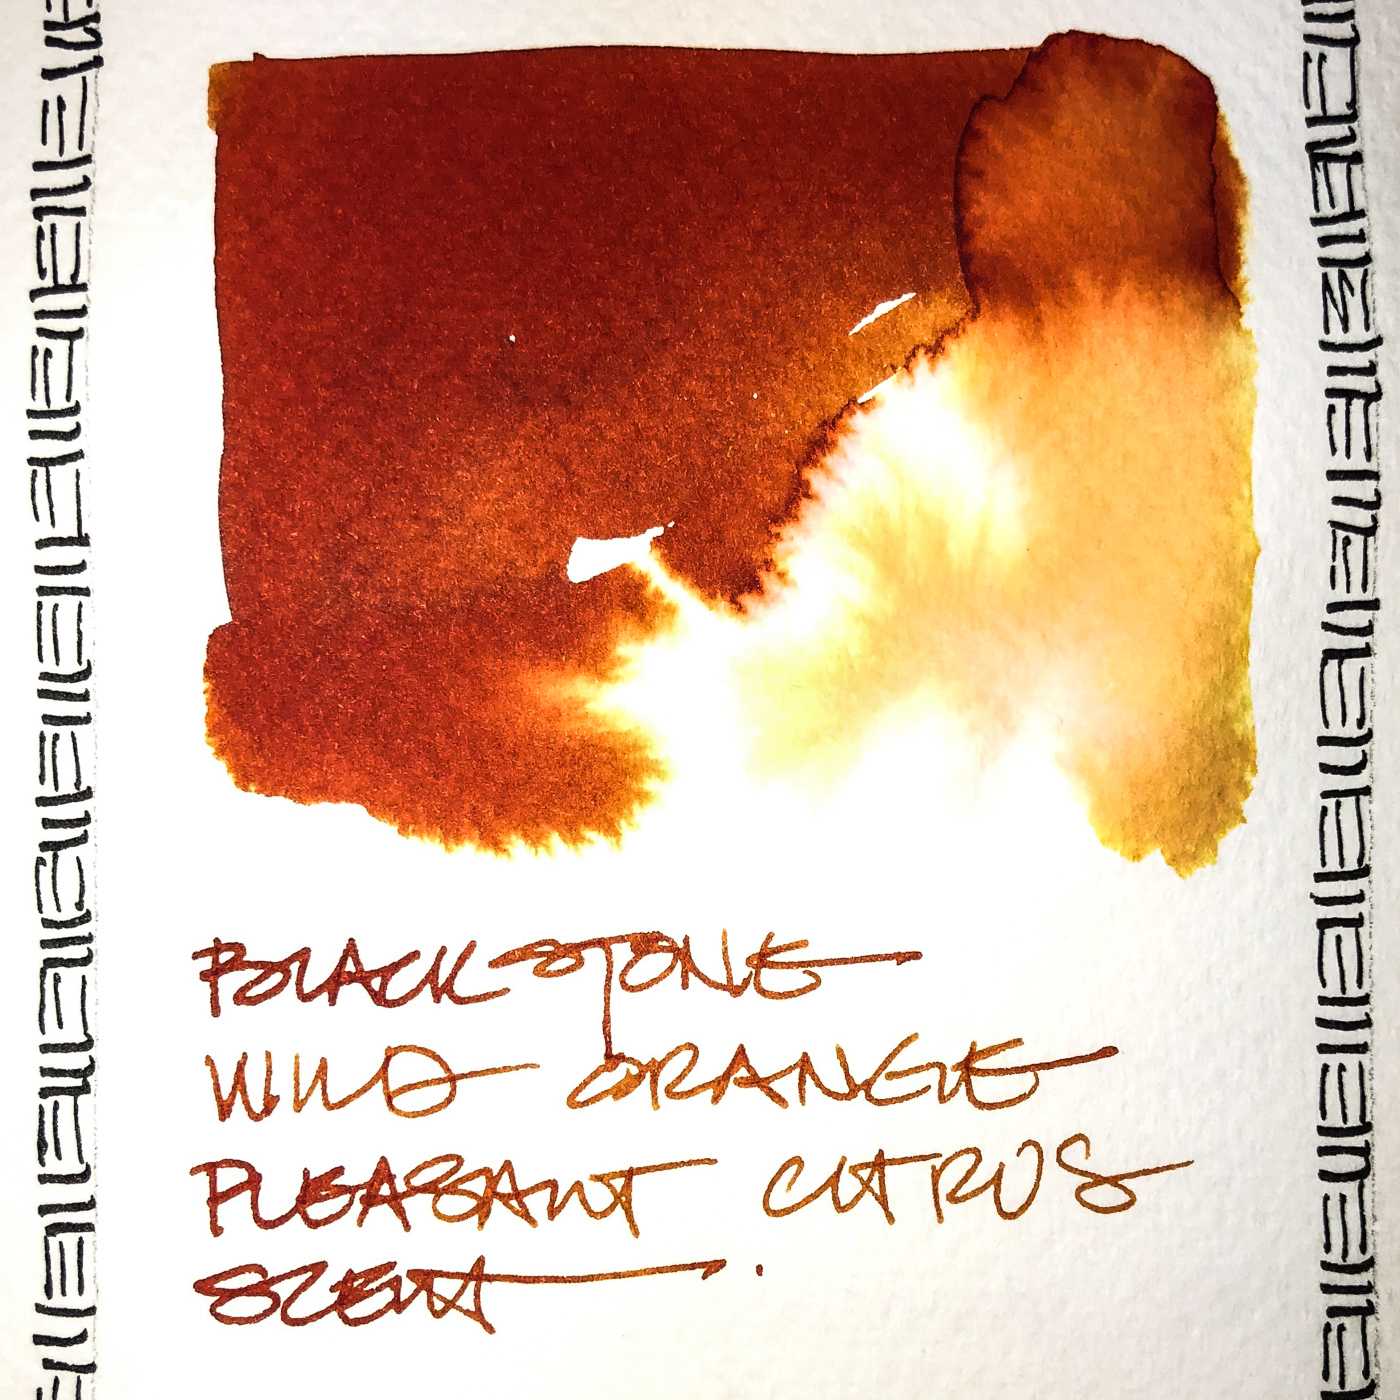 BLACKSTONE
WILD ORANGE
PLEASANT CITRUS
SCENT.